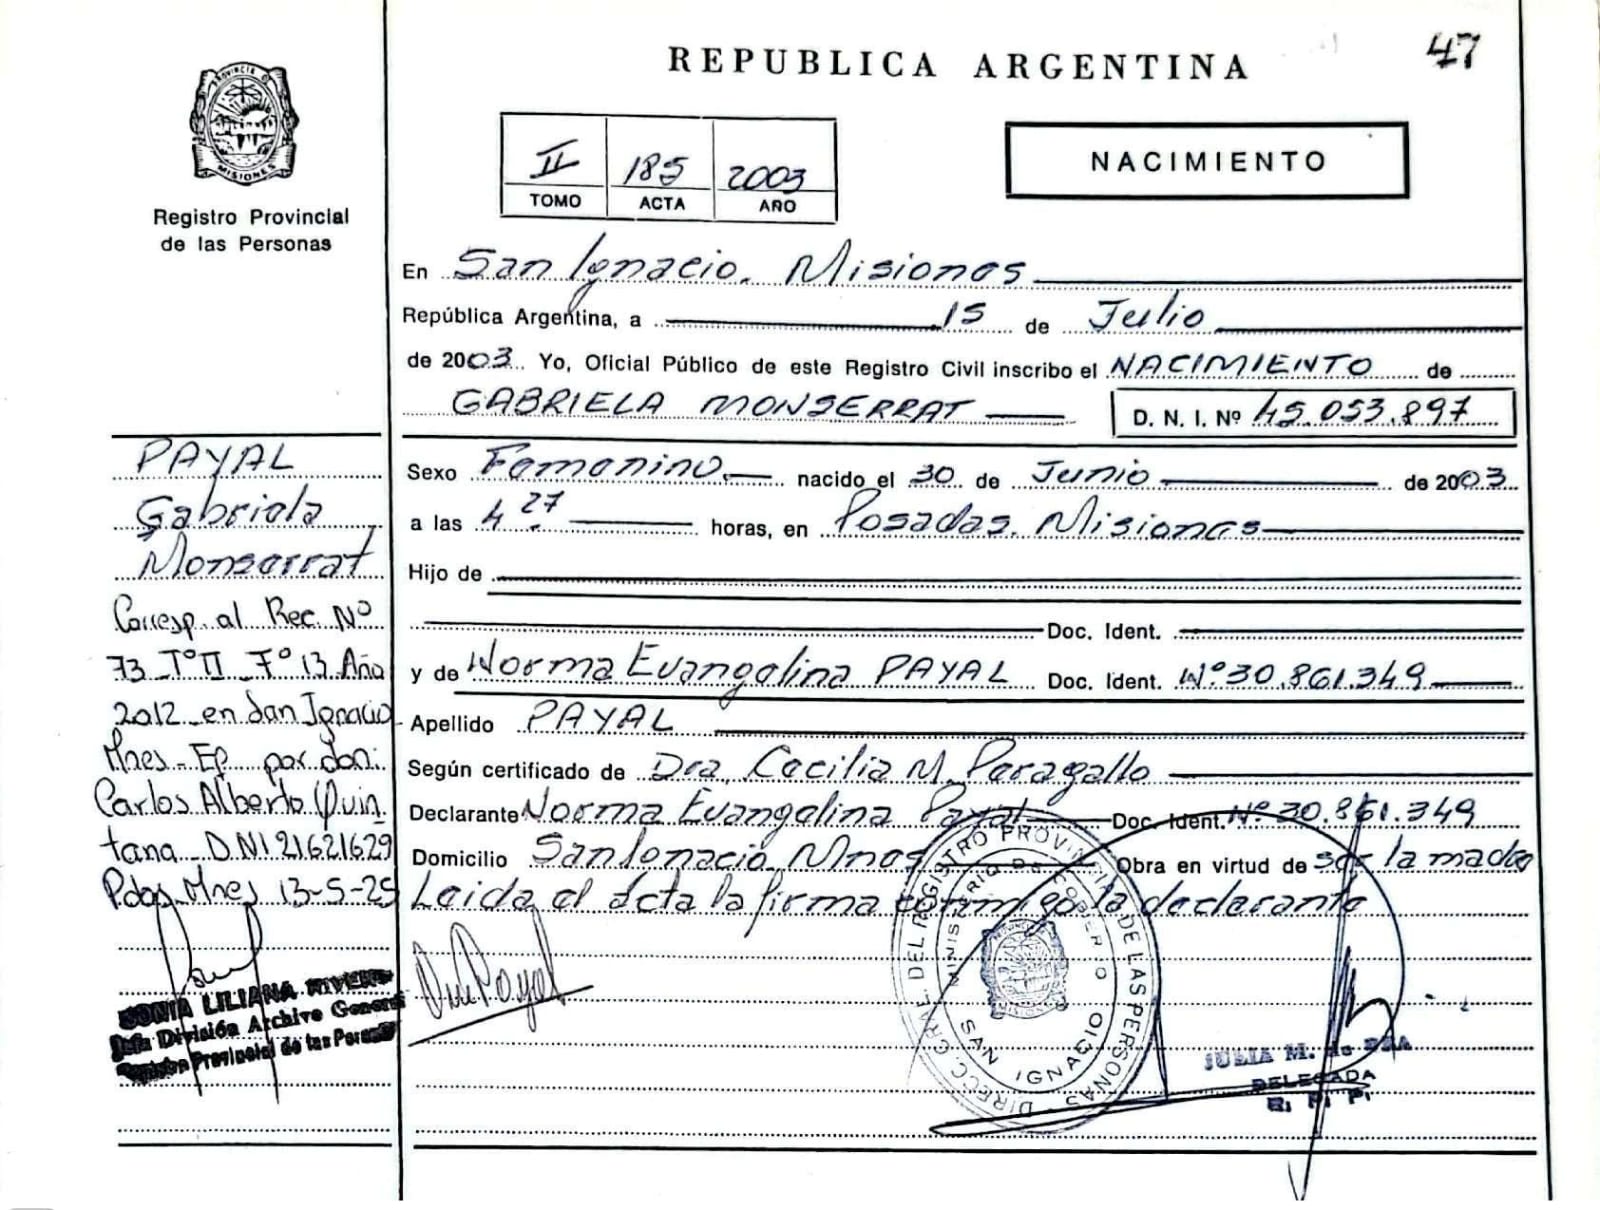 REPUBLICA ARGENTINA
47
PROVINCIA DE
MISIONES
Registro Provincial
de las Personas
II 185 2003
TOMO ACTA AÑO
NACIMIENTO
En San Ignacio. Misiones
República Argentina, a 15 de Julio
de 2003. Yo, Oficial Público de este Registro Civil inscribo el NACIMIENTO de
GABRIELA MONSERRAT D. N. I. Nº 45.053.897
Sexo Femenino nacido el 30 de Junio de 2003
a las 4 27 horas, en Posadas. Misiones
Hijo de
Doc. Ident.
y de Norma Evangelina PAYAL Doc. Ident. Nº 30.861.349
Apellido PAYAL
Según certificado de Dra. Cecilia M. Peragallo
Declarante Norma Evangelina Payal Doc. Ident. Nº 30.861.349
Domicilio San Ignacio Mnes Obra en virtud de ser la madre
Leida el acta la firma conmigo la declarante
PAYAL
Gabriela
Monserrat
Corresp. al Rec. Nº
73 Tº II Fº 13 Año
2012 en San Ignacio
Mnes - Ep por don:
Carlos Alberto Quin
tana DNI 21621629
Pdas Mnes 13-5-25
SONIA LILIANA RIVERO
Jefa División Archivo General
Provincial de las Personas
Payal
DIRECC. GRAL. DEL REGISTRO PROVINCIAL DE LAS PERSONAS
MINISTERIO DE GOBIERNO
SAN IGNACIO
MISIONES
JULIA M. de
DELEGADA
R. P. P.